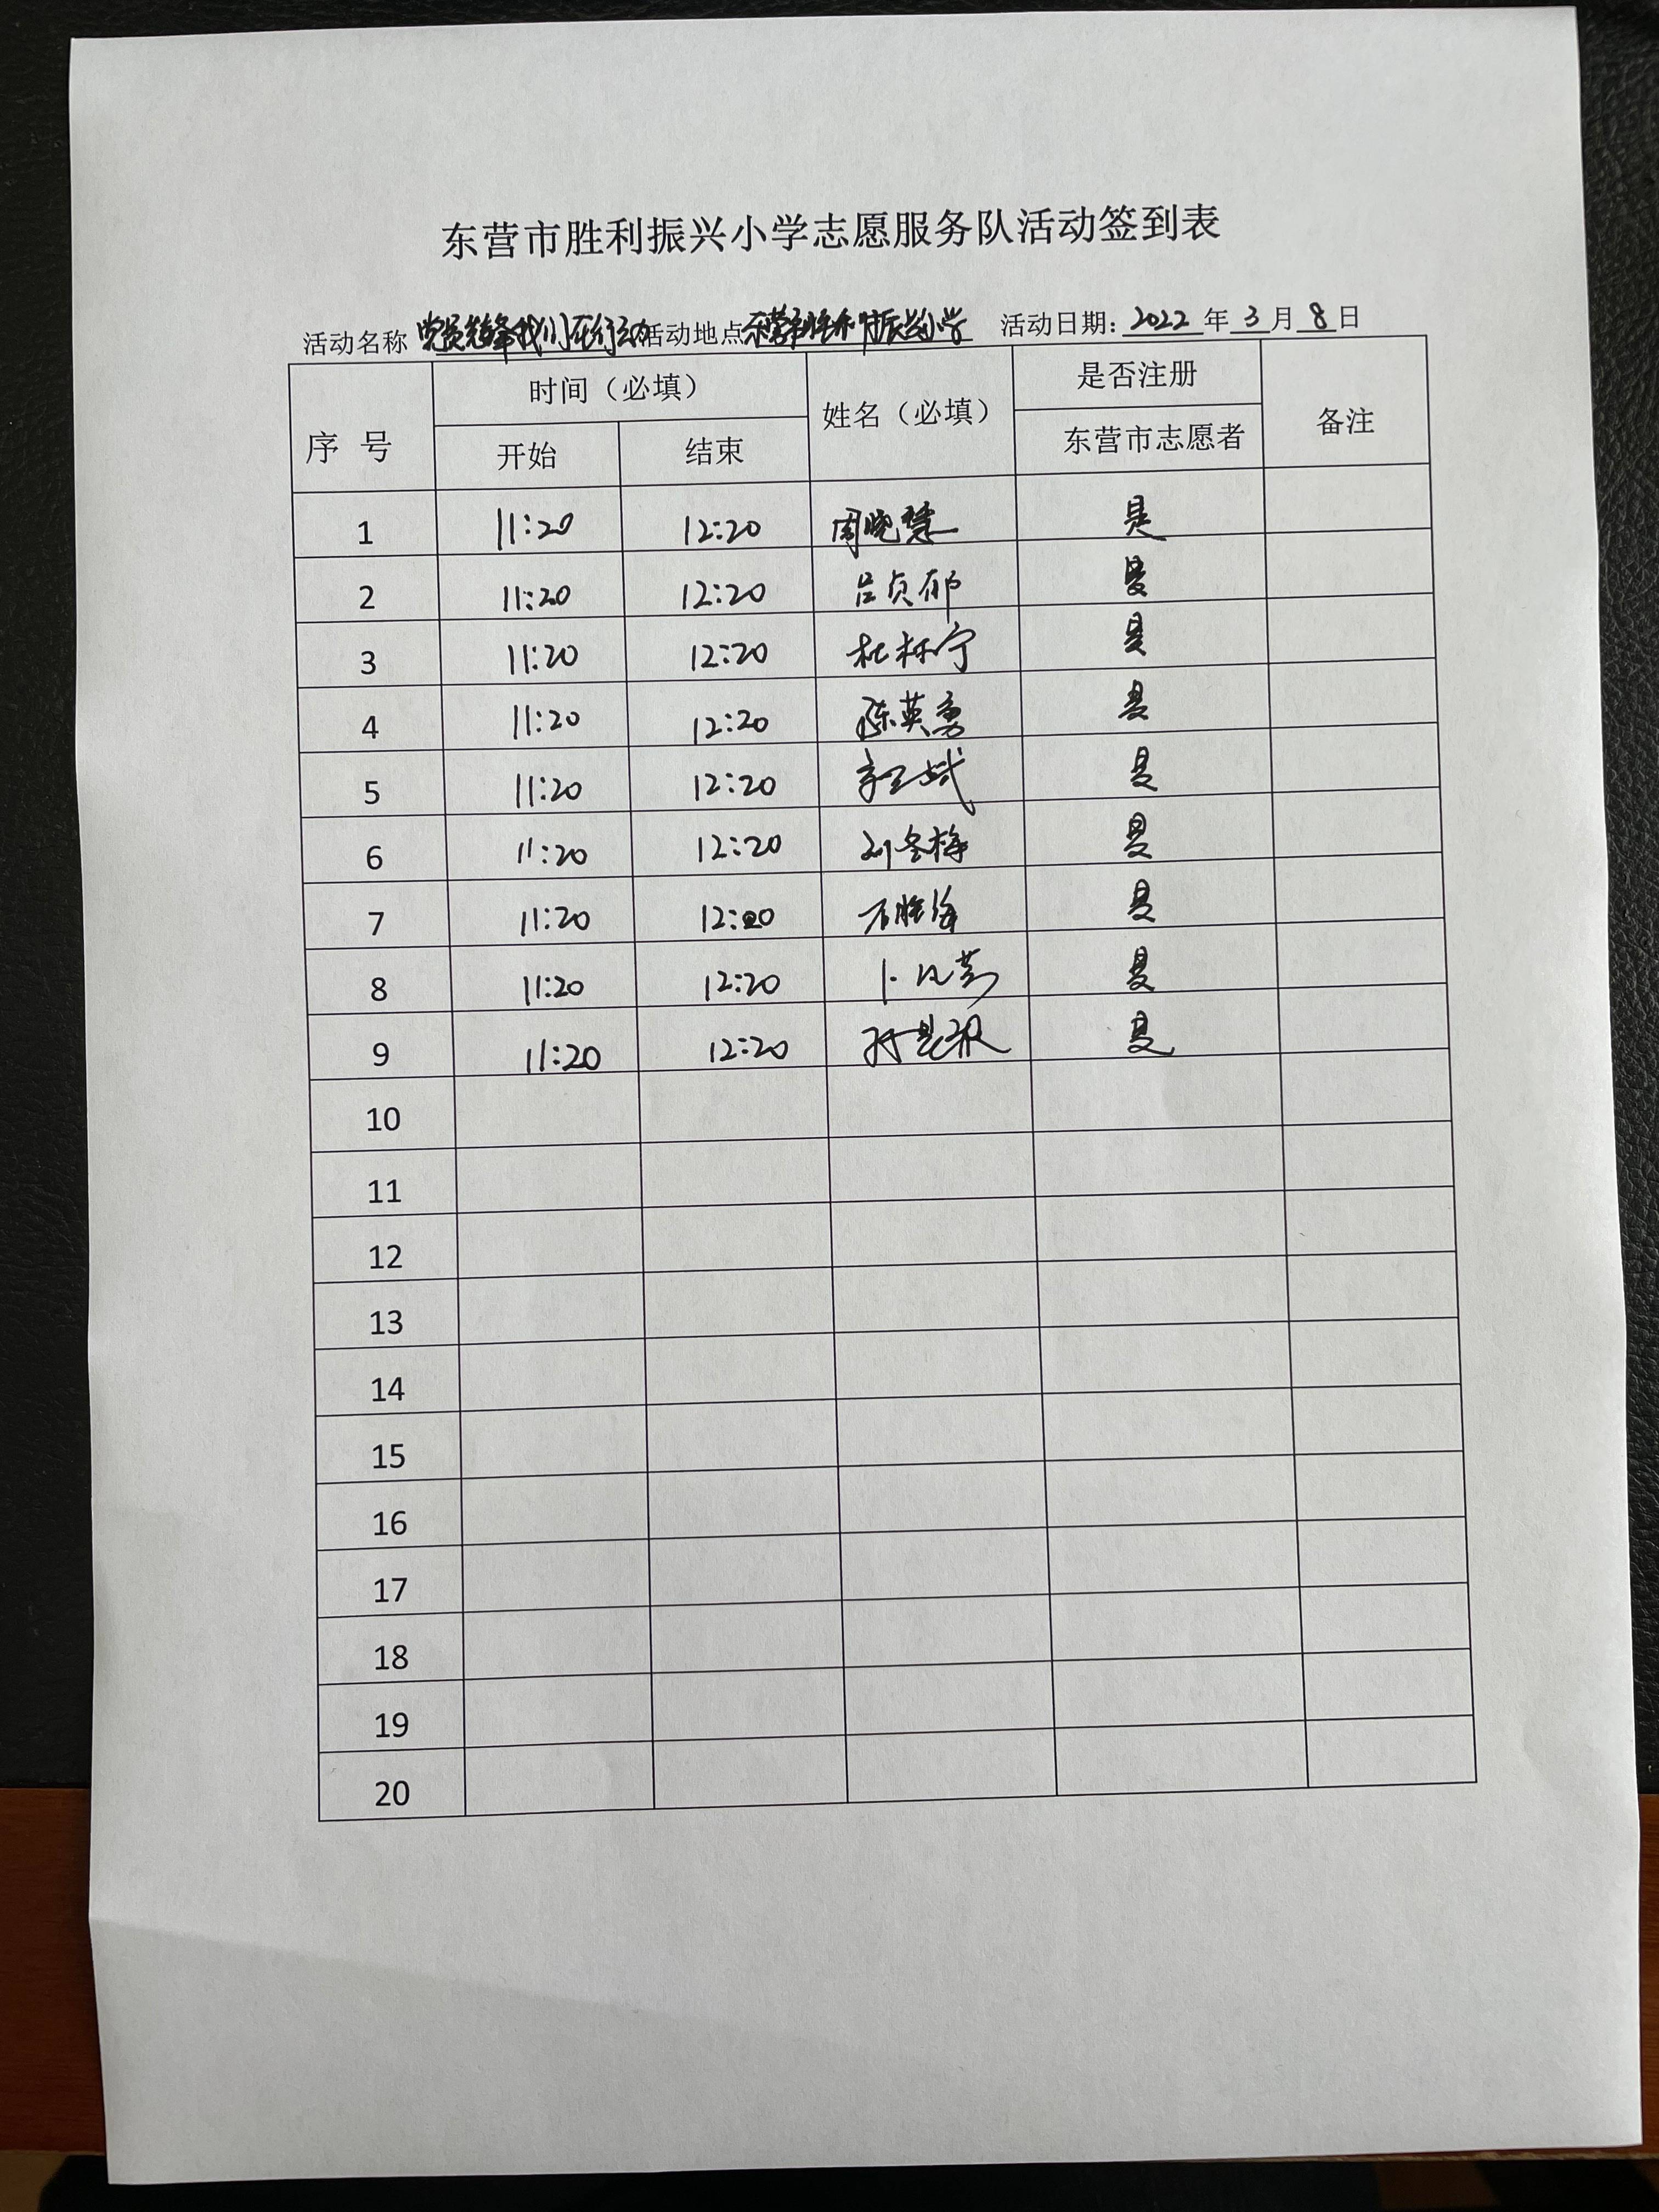 东营市胜利振兴小学志愿服务队活动签到表
活动名称 党员先锋我们在行动 活动地点 东营市胜利振兴小学 活动日期：2022年3月8日
序号 时间（必填） 姓名（必填） 是否注册 备注
开始 结束 东营市志愿者
1 11:20 12:20 周晓慧 是
2 11:20 12:20 吕贞郁 是
3 11:20 12:20 杜林宁 是
4 11:20 12:20 陈英勇 是
5 11:20 12:20 是
6 11:20 12:20 刘冬梅 是
7 11:20 12:20 石胜海 是
8 11:20 12:20 是
9 11:20 12:20 是
10
11
12
13
14
15
16
17
18
19
20